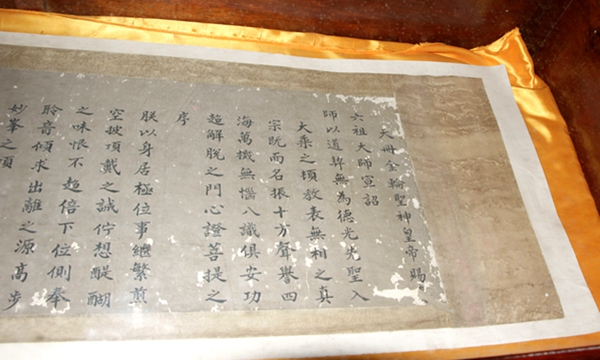 天冊金輪聖神皇帝賜
六祖大師宣詔
師以道契無為德光先聖入
大乘之頓教表無相之真
宗既而名振十方聲譽四
海萬機無惱八識俱安功
超解脫之門心證菩提之
序
朕以身居極位事繼繁煎
空披頂戴之誠佇想醍醐
之味恨不超倍下位側奉
聆音傾求出離之源高步
妙峯之頂